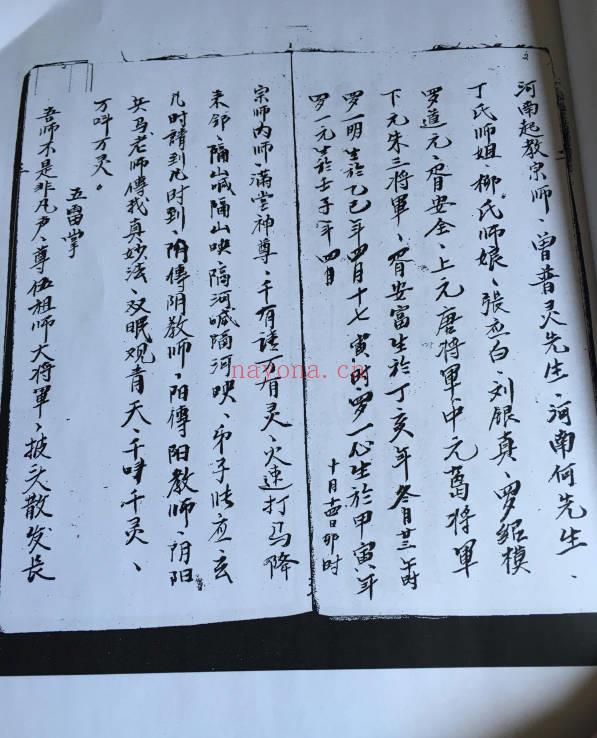 河南起教宗师、曾普灵先生、河南何先生、
丁氏师姐柳氏师娘、張杰白、刘银真、罗绍模
罗道元、胥安全、上元唐将軍中元葛将軍
下元朱三将軍、胥安富生於丁亥年冬月廿三午时
罗一明生於乙巳年四月十七寅时罗一心生於甲寅、年
十月十四日卯时
罗一元生於壬子年四月
宗师内师、满堂神尊、千有请万有灵、火速打马降
来邻、隔山喊隔山映、隔河喊隔河映、弟子
几时請到几时到、阴傳阴教师、阳傳阳教师、阴阳
兵马老师傳我真妙法、双眼观青天、千叫千灵、
万叫万灵。
五雷掌
吾师不是非凡户、尊伍祖师大将軍、披头散发長
nayona.cn